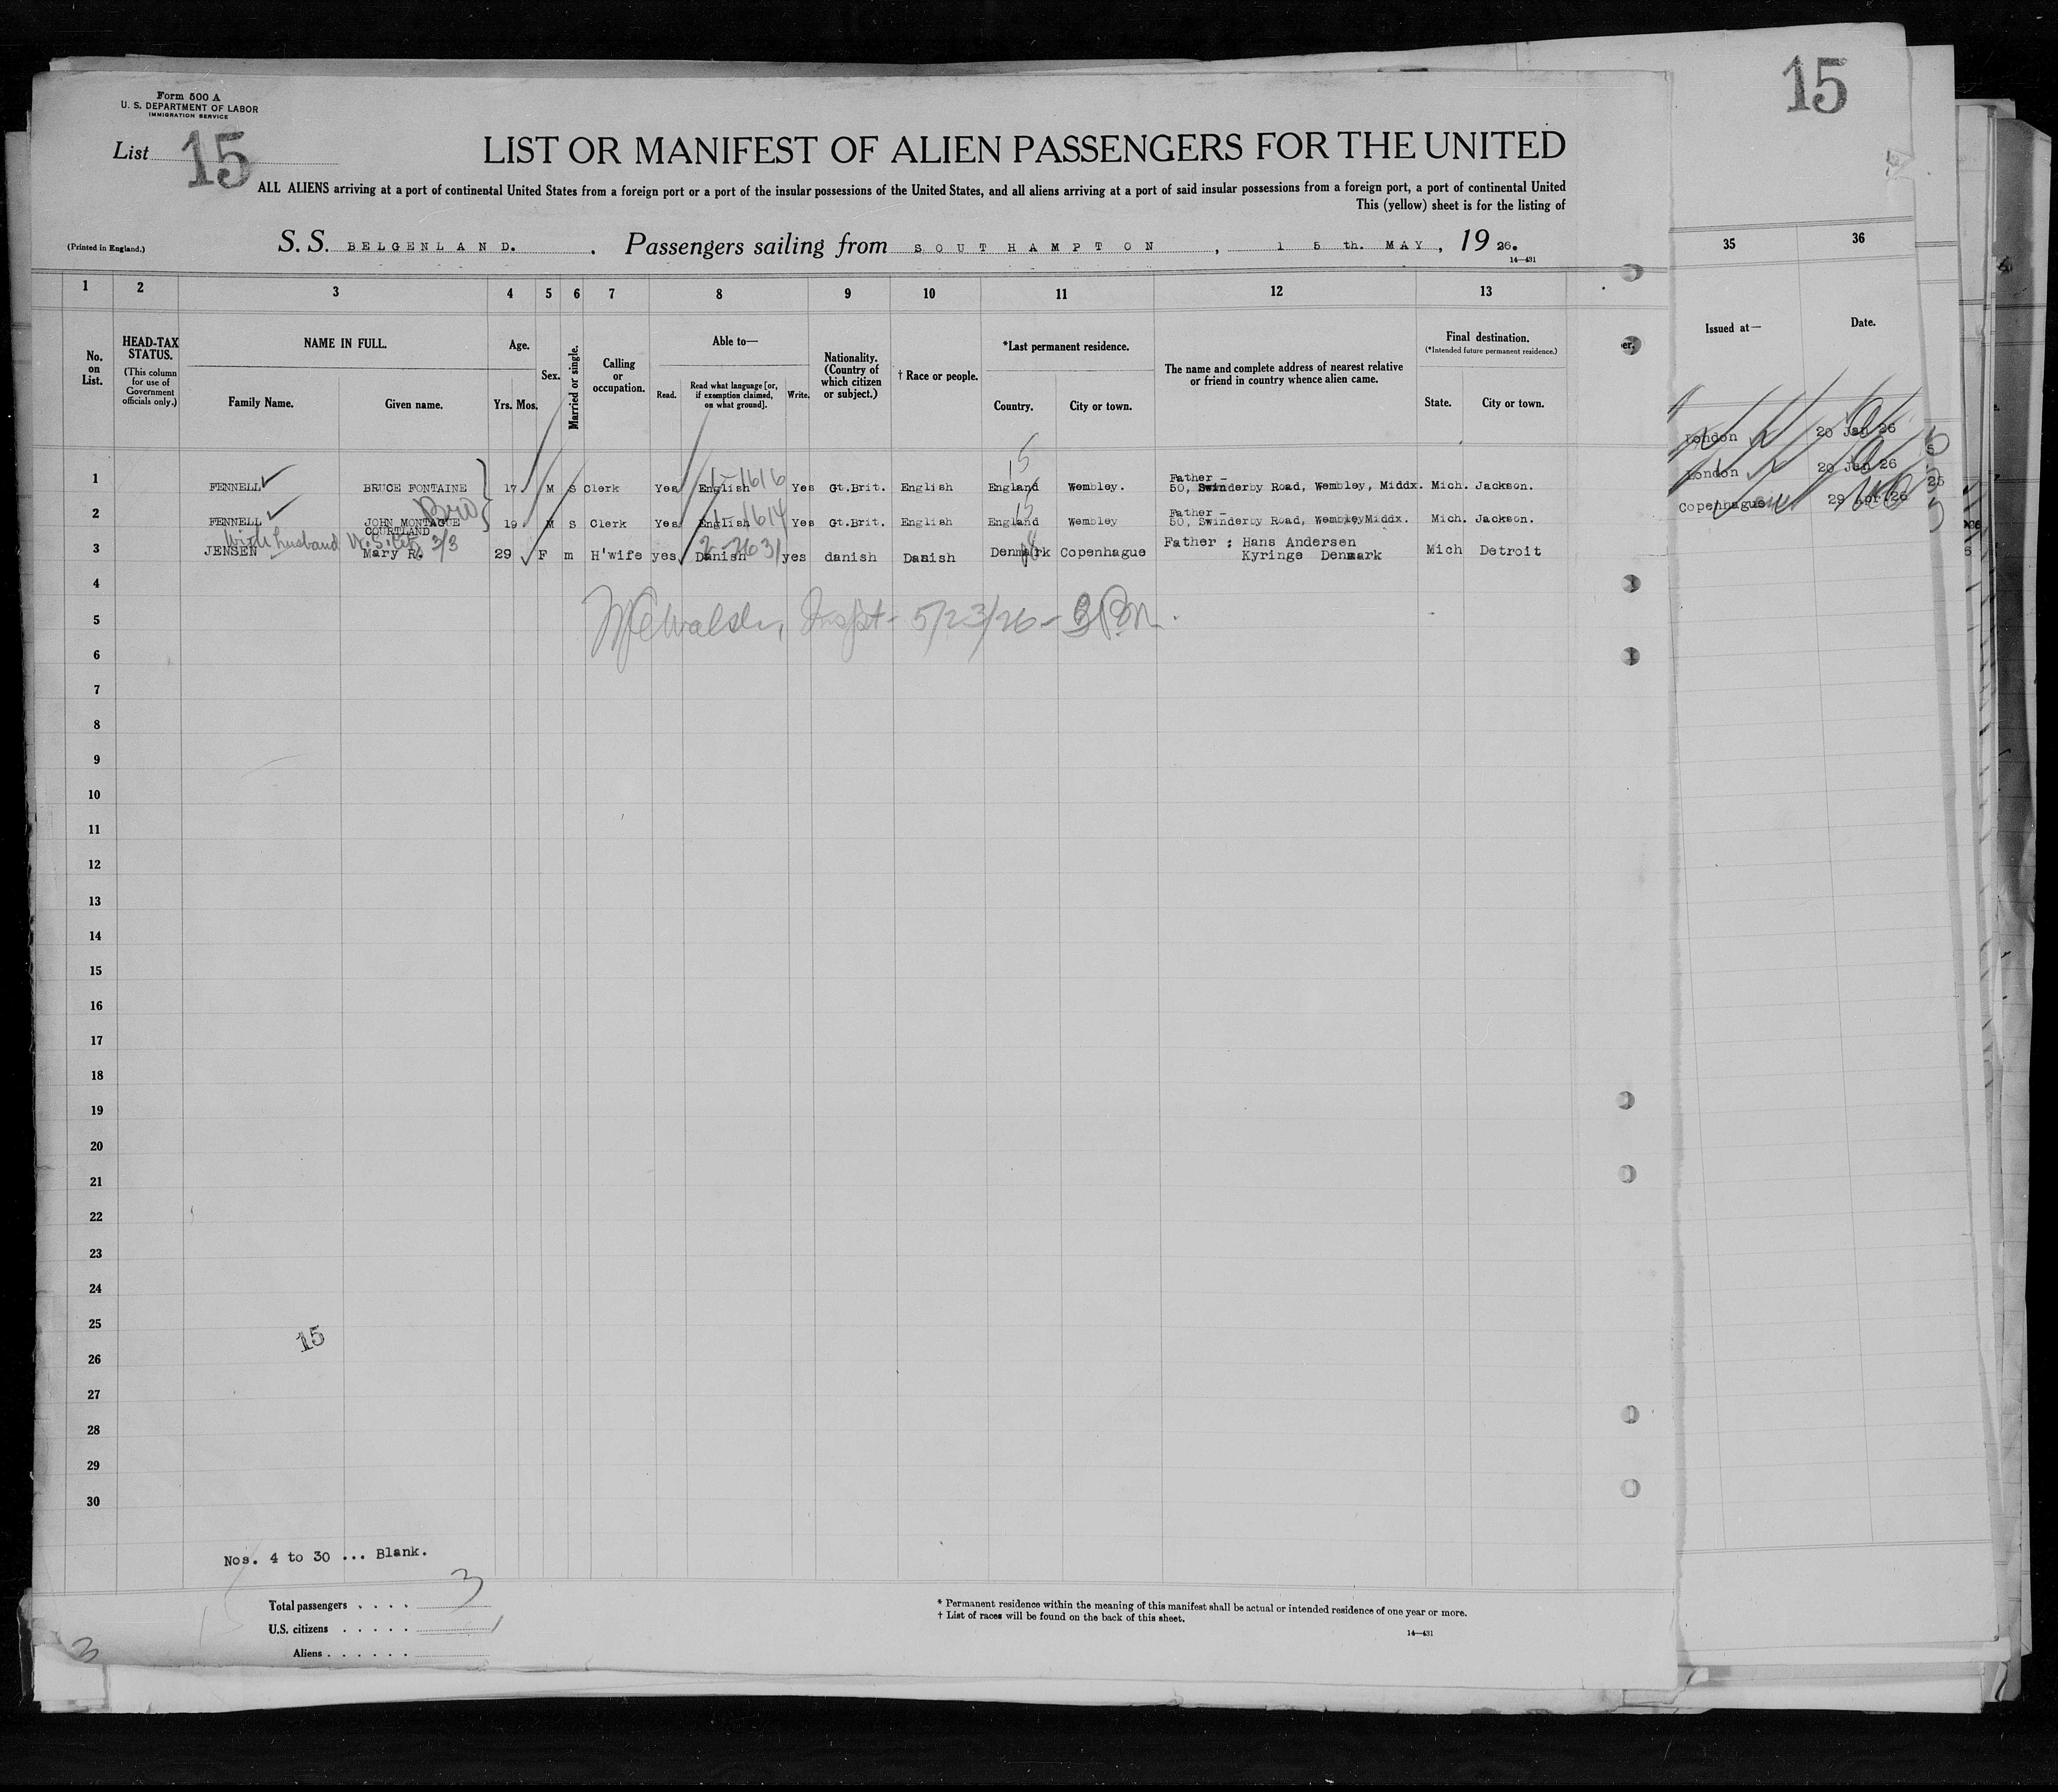 15
Form 500 A
U. S. DEPARTMENT OF LABOR
IMMIGRATION SERVICE
List 15
LIST OR MANIFEST OF ALIEN PASSENGERS FOR THE UNITED
ALL ALIENS arriving at a port of continental United States from a foreign port or a port of the insular possessions of the United States, and all aliens arriving at a port of said insular possessions from a foreign port, a port of continental United
This (yellow) sheet is for the listing of
(Printed in England.)
S. S. BELGENLAND. . Passengers sailing from SOUTHAMPTON , 15th. MAY , 19 26.
14—431
1 2 3 4 5 6 7 8 9 10 11 12 13
35 36
No. on List.
HEAD-TAX STATUS.
(This column for use of Government officials only.)
NAME IN FULL.
Family Name. Given name.
Age.
Yrs. Mos.
Sex.
Married or single.
Calling or occupation.
Able to—
Read. Read what language [or, if exemption claimed, on what ground]. Write.
Nationality. (Country of which citizen or subject.)
† Race or people.
*Last permanent residence.
Country. City or town.
The name and complete address of nearest relative or friend in country whence alien came.
Final destination.
(*Intended future permanent residence.)
State. City or town.
Issued at— Date.
15
1-1616
1 FENNELL BRUCE FONTAINE 17 M S Clerk Yes English Yes Gt.Brit. English England Wembley. Father - 50, Swinderby Road, Wembley, Middx. Mich. Jackson. London 20 Jan 26
1-1614
2 FENNELL JOHN MONTAGUE COURTLAND 19 M S Clerk Yes English Yes Gt.Brit. English England Wembley Father - 50, Swinderby Road, Wembley Middx. Mich. Jackson. London 20 Jan 26
With husband 3/3
2-2631
3 JENSEN Mary R. 29 F m H'wife yes Danish yes danish Danish Denmark Copenhague Father : Hans Andersen Kyringe Denmark Mich Detroit Copenhague 29 Apr 26
4
5 Inspt - 5/23/26 -
6
7
8
9
10
11
12
13
14
15
16
17
18
19
20
21
22
23
24
25
15
26
27
28
29
30
Nos. 4 to 30 ... Blank.
Total passengers . . . . 3
U.S. citizens . . . . .
Aliens . . . . . .
* Permanent residence within the meaning of this manifest shall be actual or intended residence of one year or more.
† List of races will be found on the back of this sheet.
14—431
3